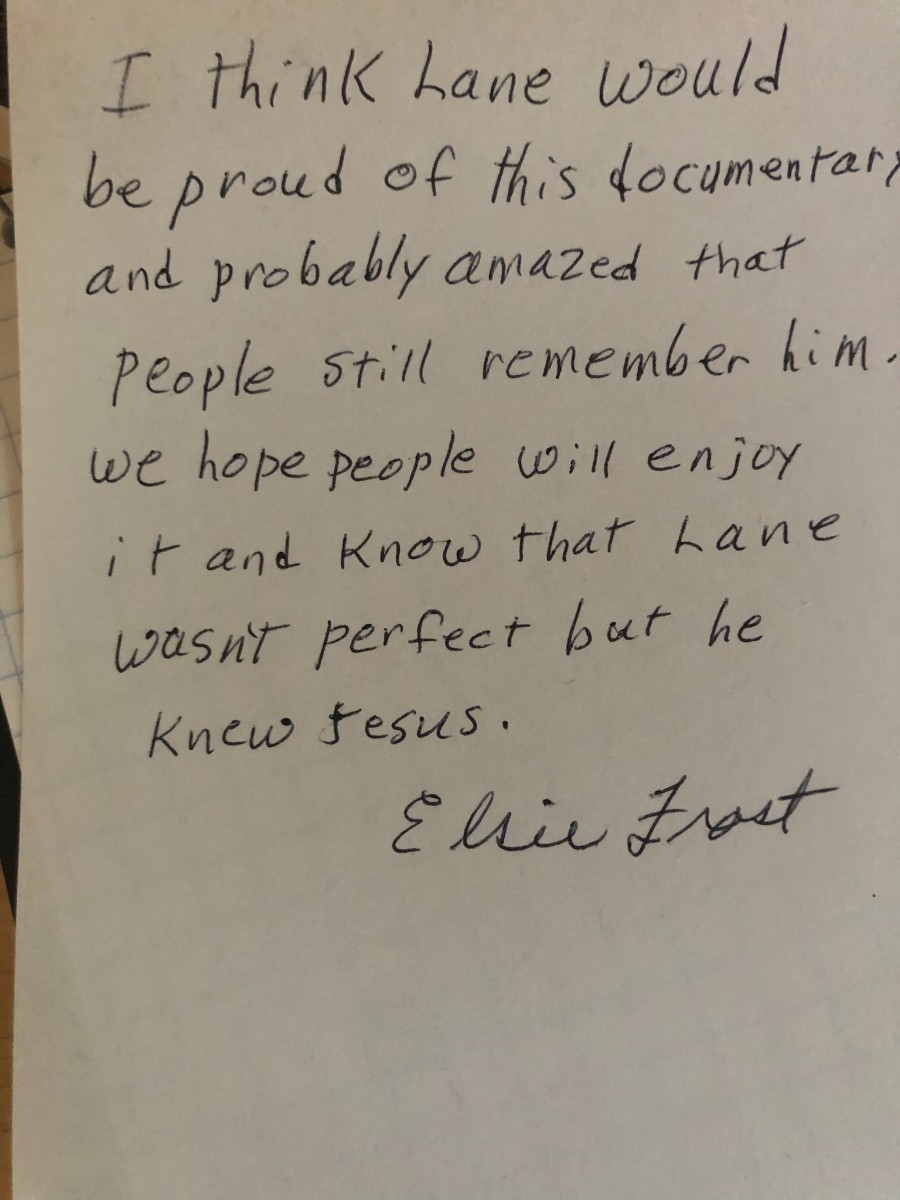 I think Lane would
be proud of this documentary
and probably amazed that
people still remember him.
we hope people will enjoy
it and know that Lane
wasn't perfect but he
knew Jesus.
Elsie Frost